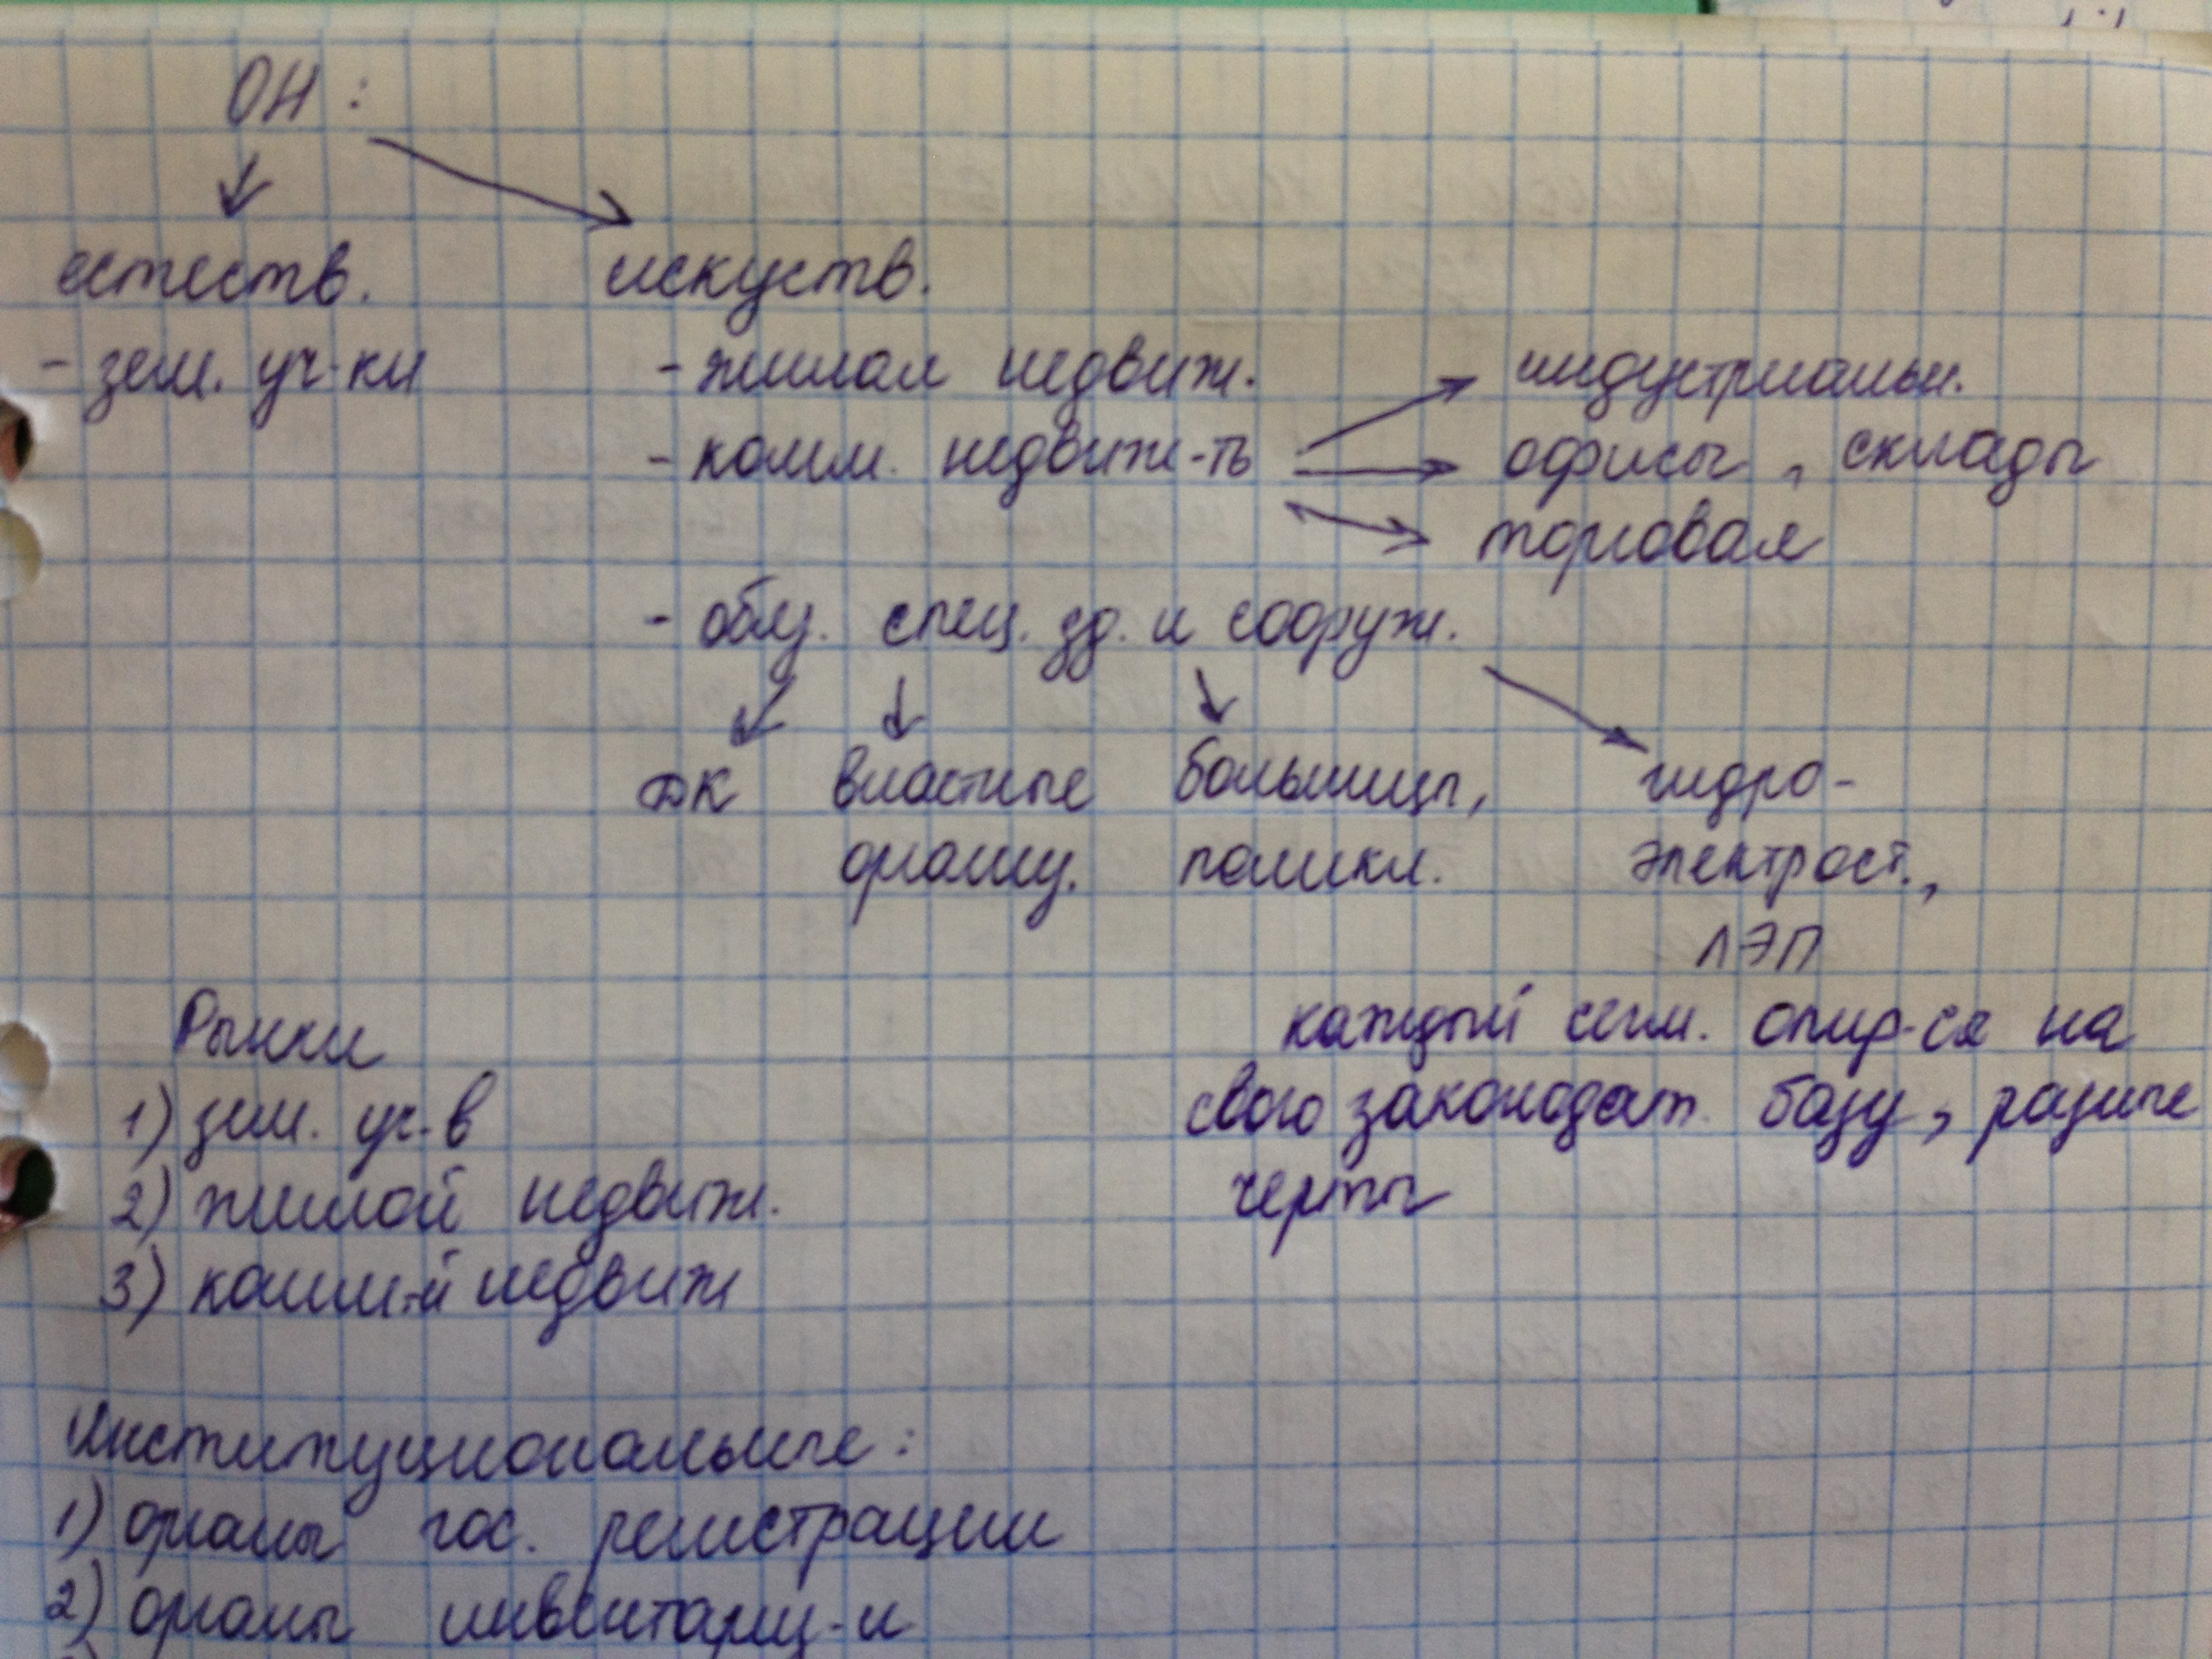 ОН:
естеств. искуств.
- зем. уч-ки - жилая недвиж. индустриальн.
- комм. недвиж-ть офисы, склады
торговая
- общ. спец. зд. и сооруж.
ДК властные больницы, гидро-
организ. поликл. электрост.,
ЛЭП
Рынки каждый сегм. опир-ся на
1) зем. уч-в свою законодат. базу, разные
2) жилой недвиж. черты
3) комм-й недвиж
Институциональные:
1) органы гос. регистрации
2) органы инвентариз-и